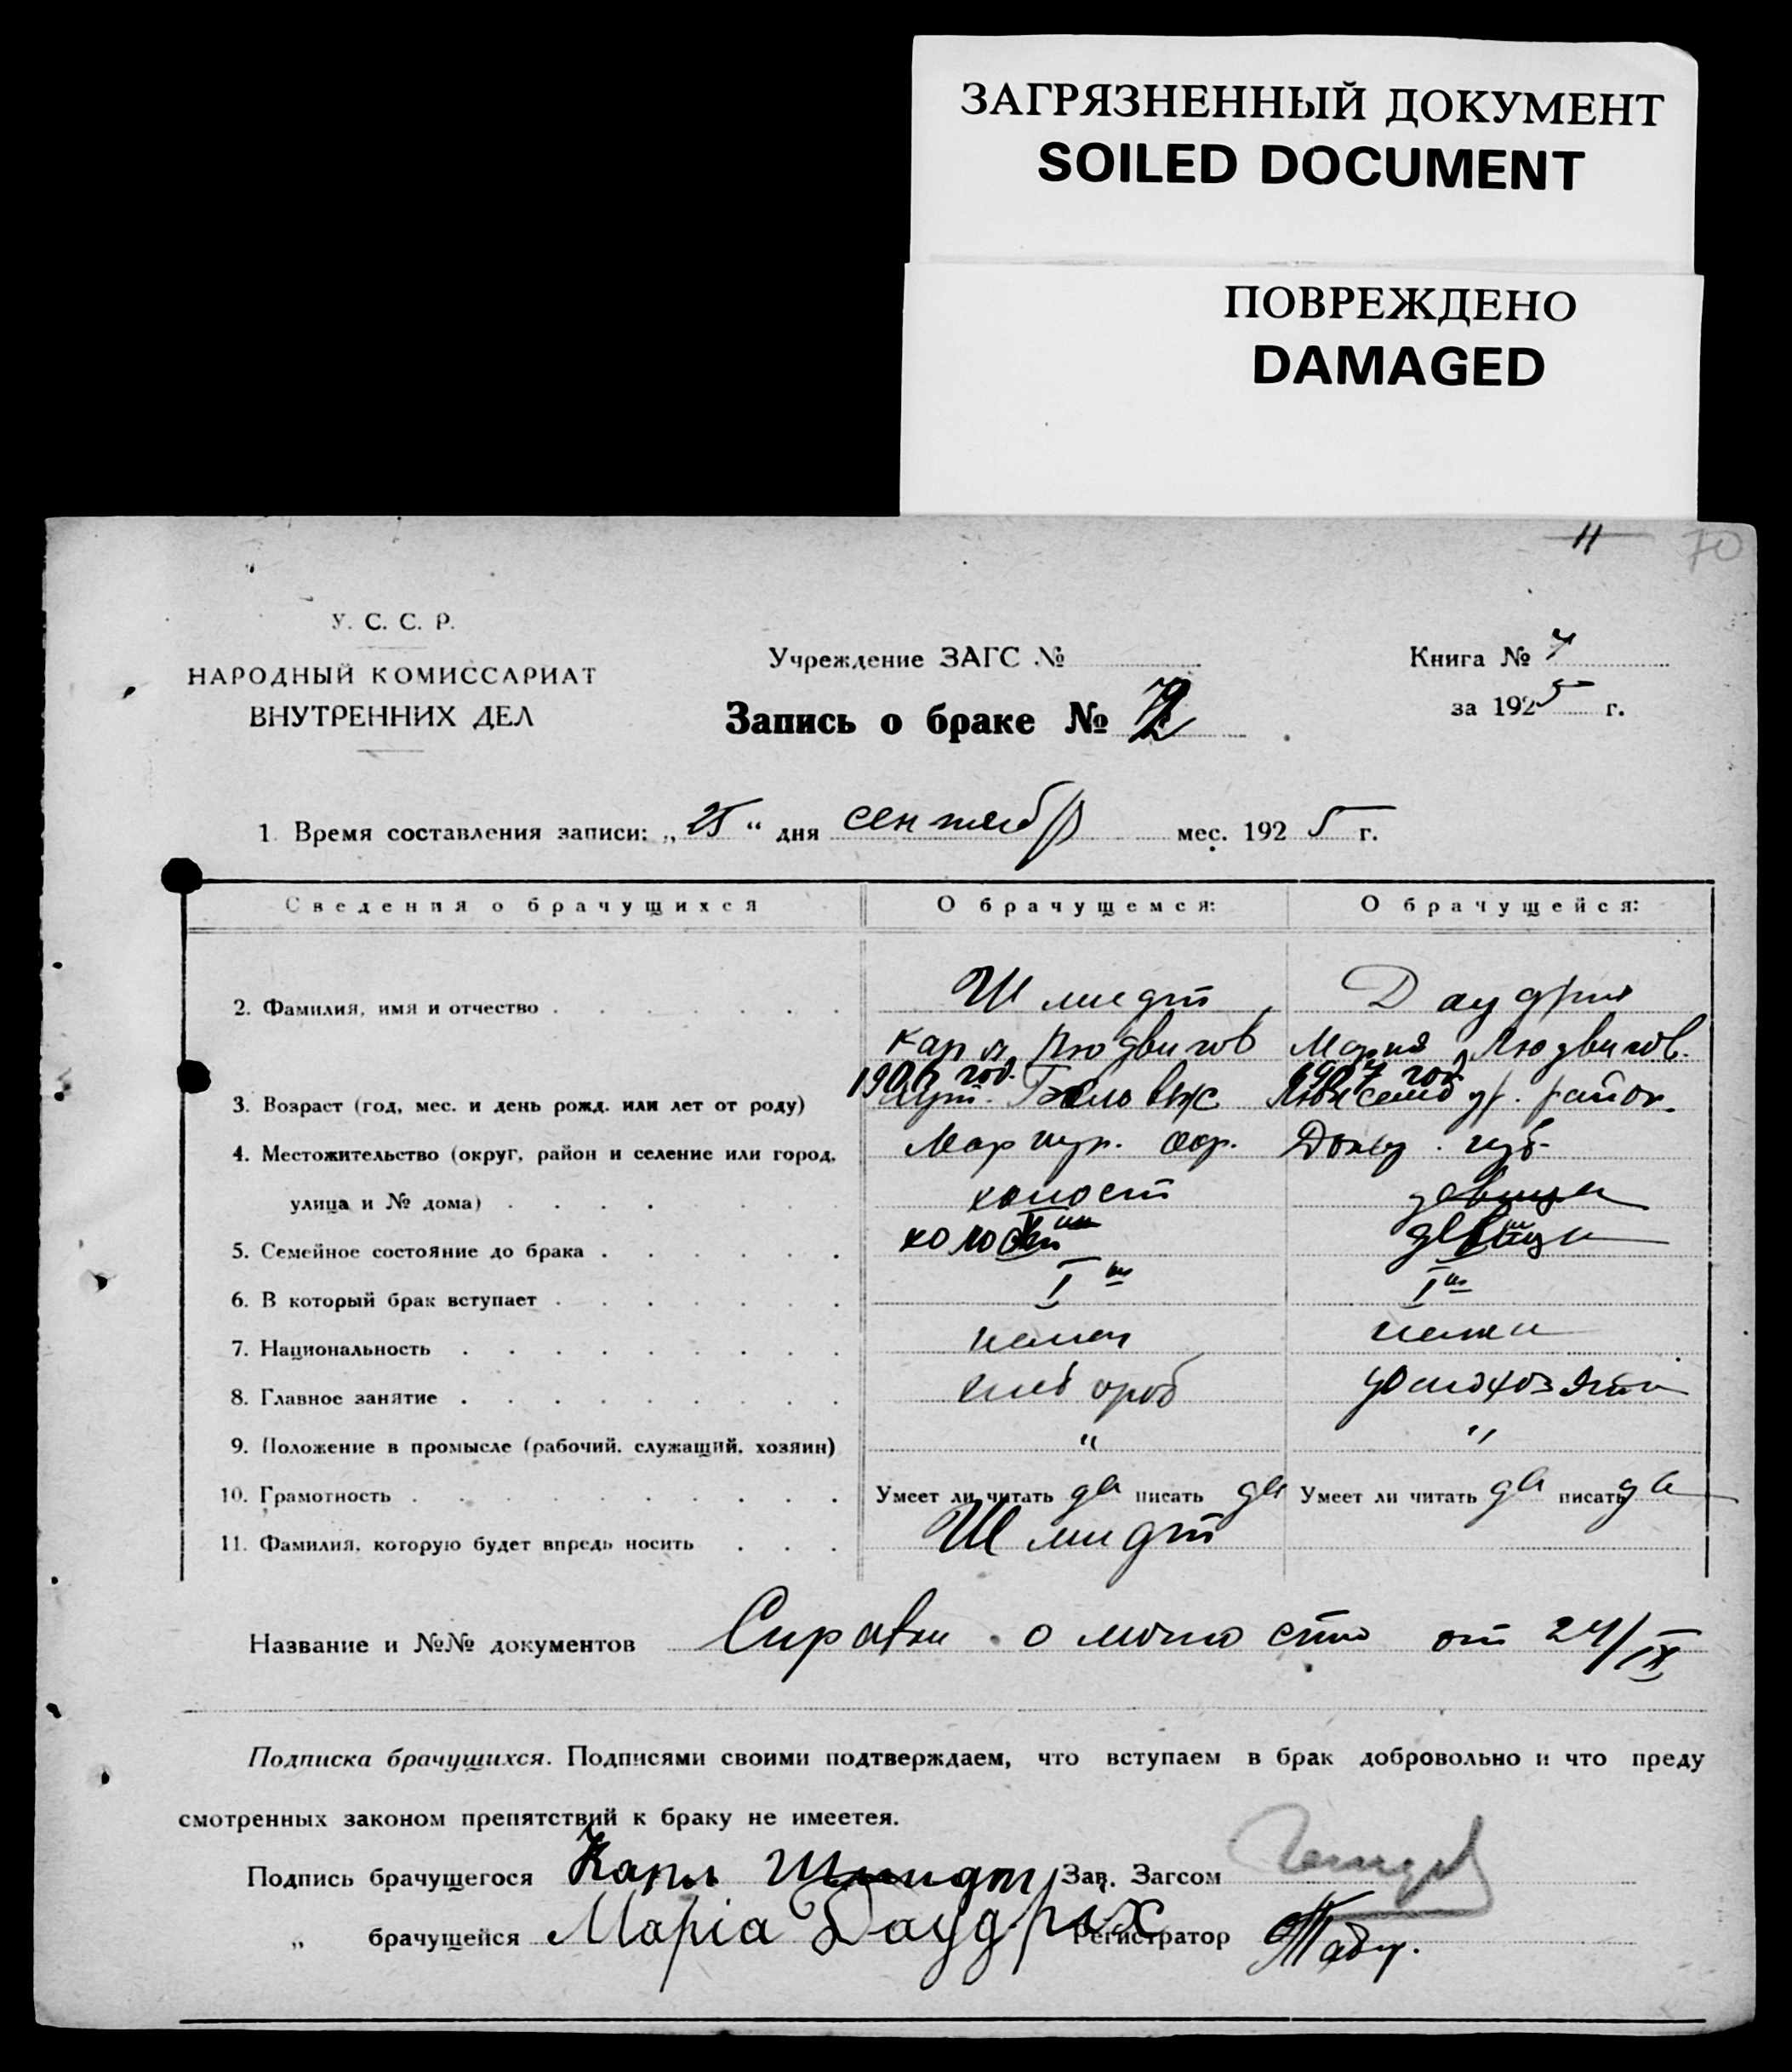 ЗАГРЯЗНЕННЫЙ ДОКУМЕНТ
SOILED DOCUMENT
ПОВРЕЖДЕНО
DAMAGED
11 70
У. С. С. Р.
НАРОДНЫЙ КОМИССАРИАТ
ВНУТРЕННИХ ДЕЛ
Учреждение ЗАГС №
Запись о браке №
Книга №
за 1925 г.
1. Время составления записи: „25“ дня сентябр мес. 1925 г.
Сведения о брачущихся О брачущемся: О брачущейся:
2. Фамилия, имя и отчество Шмидт Даудрих
Карл Людвигов Мария Людвигов.
1906 год. 1907 год
3. Возраст (год, мес. и день рожд. или лет от роду) район.
4. Местожительство (округ, район и селение или город, Мариуп. окр. Донец. губ.
улица и № дома) холост девица
5. Семейное состояние до брака холост девица
6. В который брак вступает I й I й
7. Национальность немец немка
8. Главное занятие хлебороб домохозяйка
9. Положение в промысле (рабочий, служащий, хозяин) " "
10. Грамотность Умеет ли читать да писать да Умеет ли читать да писать да
11. Фамилия, которую будет впредь носить Шмидт
Название и №№ документов Справки о от 24/IX
Подписка брачущихся. Подписями своими подтверждаем, что вступаем в брак добровольно и что преду
смотренных законом препятствий к браку не имеетея.
Подпись брачущегося Карл Шмидт Зав. Загсом
„ брачущейся Маріа Даудрих Регистратор